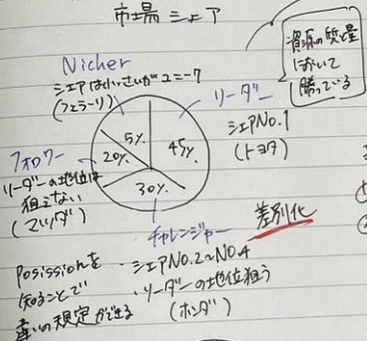 市場シェア
資源の質と量
において
勝っている
Nicher
シェアは小さいがユニーク
(フェラーリ)
リーダー
シェアNo.1
(トヨタ)
5%
45%
20%
30%
フォロワー
リーダーの地位は
狙えない
(マツダ)
チャレンジャー
差別化
・シェアNO.2~NO.4
・リーダーの地位狙う
(ホンダ)
Posissionを
知ることで
違いの規定ができる